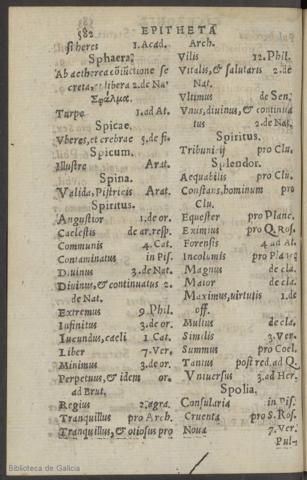 582 EPITHETA
stheres 1. Acad.
Sphaera.
Ab aetherea cõiũctione se
creta, & libera 2. de Na.
Σφάλμα.
Turpe 1. ad At.
Spicae.
Vberes, et crebrae 5. de fi.
Spicum.
Illustre Arat.
Spina.
Valida, Pistricis Arat.
Spiritus.
Angustior 1. de or.
Caelestis de ar. resp.
Communis 4. Cat.
Contaminatus in Pis.
Diuinus 3. de Nat.
Diuinus, & continuatus 2.
de Nat.
Extremus 9. Phil.
Infinitus 3. de or.
Iucundus, caeli 1. Cat.
Liber 7. Ver.
Minimus 3. de or.
Perpetuus, & idem or.
ad Brut.
Regius 2. agra.
Tranquillus pro Arch.
Tranquillus, & otiosus pro
Arch.
Vilis 12. Phil.
Vitalis, & salutaris 2. de
Nat.
Vltimus de Sen.
Vnus, diuinus, & continua
tus 2. de Nat.
Spiritus.
Tribunitij pro Clu.
Splendor.
Aequabilis pro Clu.
Constans, hominum pro
Clu.
Equester pro Planc.
Eximius pro Q. Ros.
Forensis 4. ad At.
Incolumis pro Planc.
Magnus de cla.
Maior de cla.
Maximus, virtutis 1. de
off.
Multus de cla.
Similis 3. Ver.
Summus pro Coel.
Tantus post red. ad Q.
Vniuersus 3. ad Her.
Spolia.
Consularia in Pis.
Cruenta pro S. Ros.
Noua 7. Ver.
Pul-
Biblioteca de Galicia